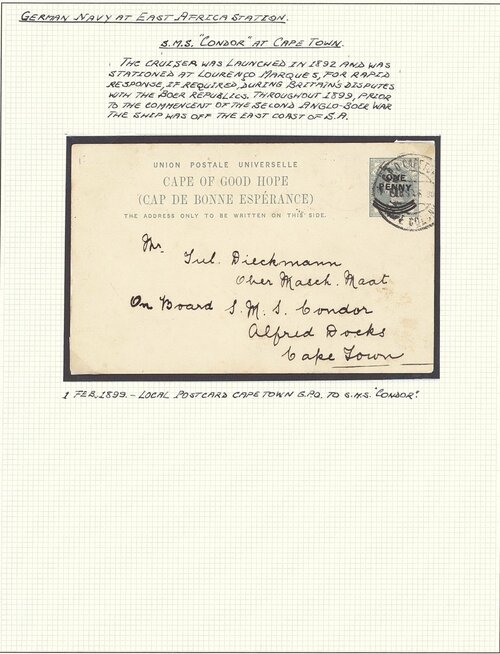 GERMAN NAVY AT EAST AFRICA STATION.
S.M.S. "CONDOR" AT CAPE TOWN.
THE CRUISER WAS LAUNCHED IN 1892 AND WAS
STATIONED AT LOURENÇO MARQUES, FOR RAPID
RESPONSE, IF REQUIRED, DURING BRITAIN'S DISPUTES
WITH THE BOER REPUBLICS. THROUGHOUT 1899, PRIOR
TO THE COMMENCENT OF THE SECOND ANGLO-BOER WAR
THE SHIP WAS OFF THE EAST COAST OF S.A.
UNION POSTALE UNIVERSELLE
CAPE OF GOOD HOPE
(CAP DE BONNE ESPÉRANCE)
THE ADDRESS ONLY TO BE WRITTEN ON THIS SIDE.
ONE
PENNY
Mr.
Jul. Dieckmann
Ober Masch. Maat
On Board S. M. S. Condor
Alfred Docks
Cape Town
1 FEB, 1899. - LOCAL POSTCARD CAPE TOWN G.P.O. TO S.M.S. "CONDOR".